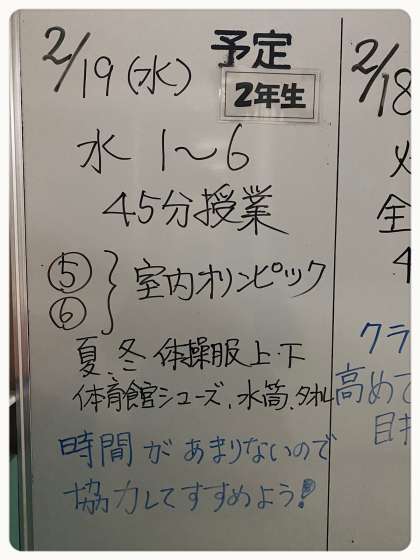 2/19(水) 予定
2年生
水 1~6
45分授業
⑤ ⑥ } 室内オリンピック
夏、冬 体操服上・下
体育館シューズ、水筒、タオル
時間があまりないので
協力してすすめよう!
2/18
全
4
クラ
高めて
目